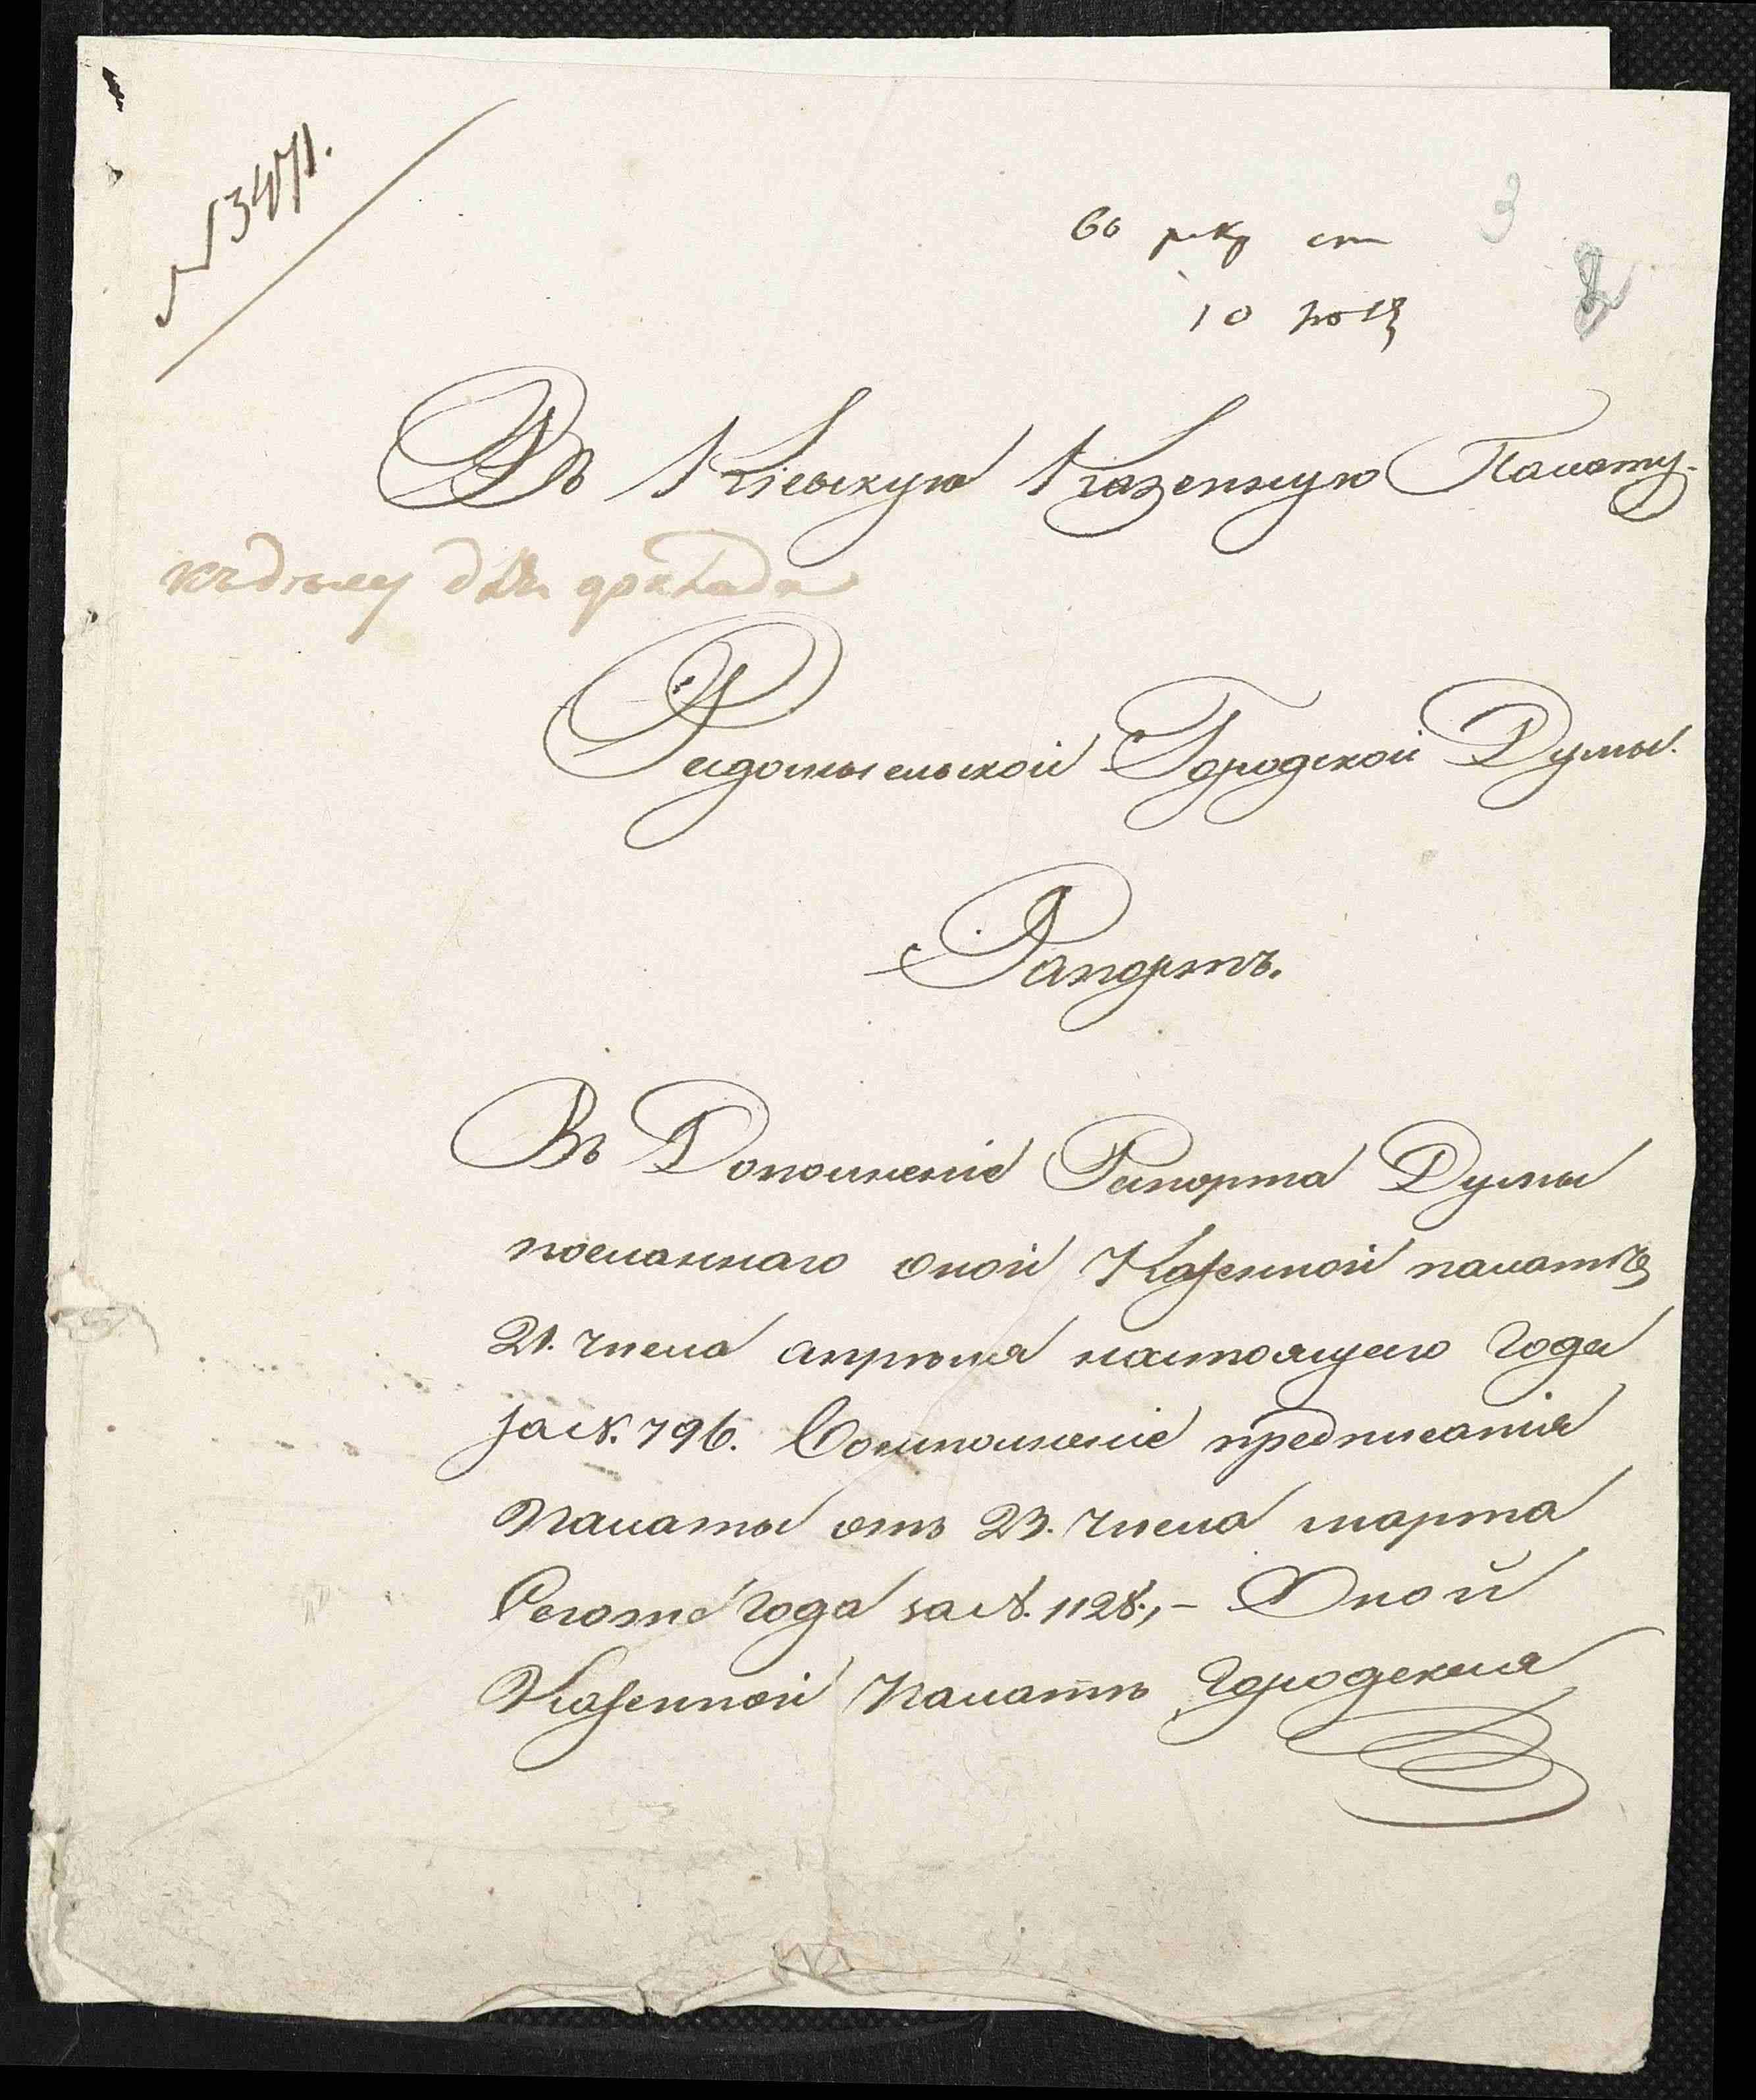 № 3471.
3
2
Въ Кіевскую Казенную Палату.
къ дѣлу для доклада
Радомысльской Городской Думы.
Рапортъ.
Въ Дополненіе Рапорта Думы
посланнаго оной Казенной палатѣ
21. числа апрѣля настоящего года
за №. 796. Воисполненіе предписанія
Палаты отъ 23. числа марта
Сегоже года за №. 1128., – Оной
Казенной Палатѣ Городская